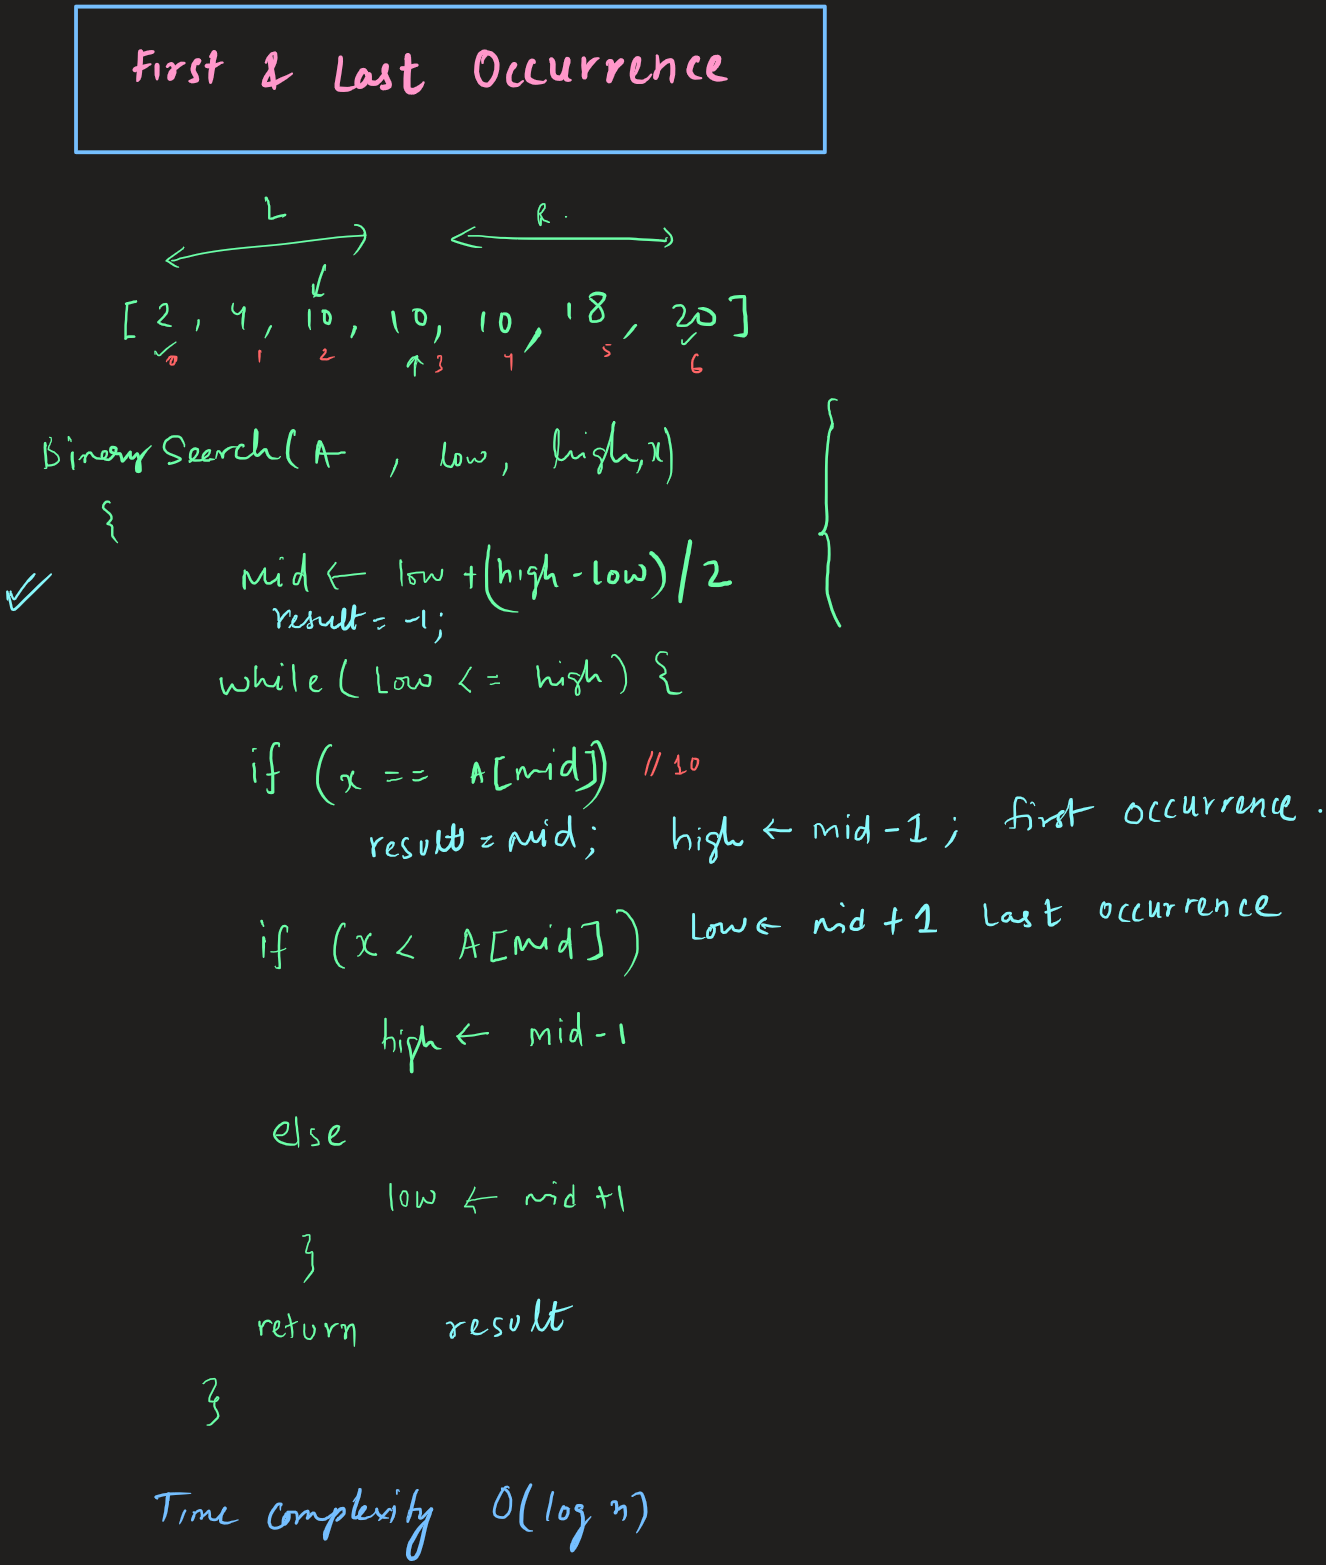 First & Last Occurrence
L R.
[ 2, 4, 10, 10, 10, 18, 20 ]
0 1 2 3 4 5 6
Binary Search(A , low, high, x)
{
mid ← low + (high - low) / 2
result = -1;
while ( Low <= high ) {
if (x == A[mid]) // 10
result = mid; high ← mid - 1 ; first occurrence.
if (x < A[mid]) Low ← mid + 1 Last occurrence
high ← mid - 1
else
low ← mid + 1
}
return result
}
Time complexity O(log n)